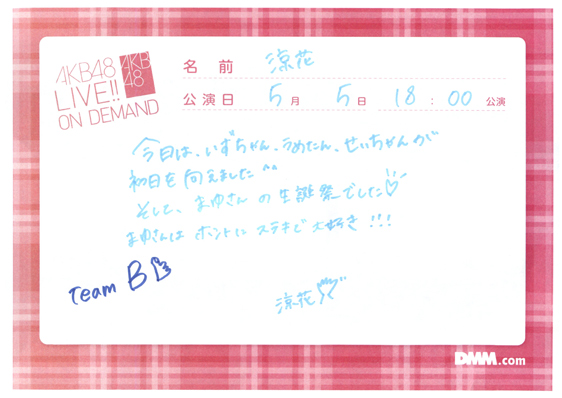 AKB48
LIVE!!
ON DEMAND
AKB
48
名前 涼花
公演日 5月 5日 18:00 公演
今日は、いずちゃん、うめたん、せいちゃんが
初日を向えました^^
そして、まゆさんの生誕祭でした♡
まゆさんはホントにステキで大好き!!!
Team B
涼花
DMM.com